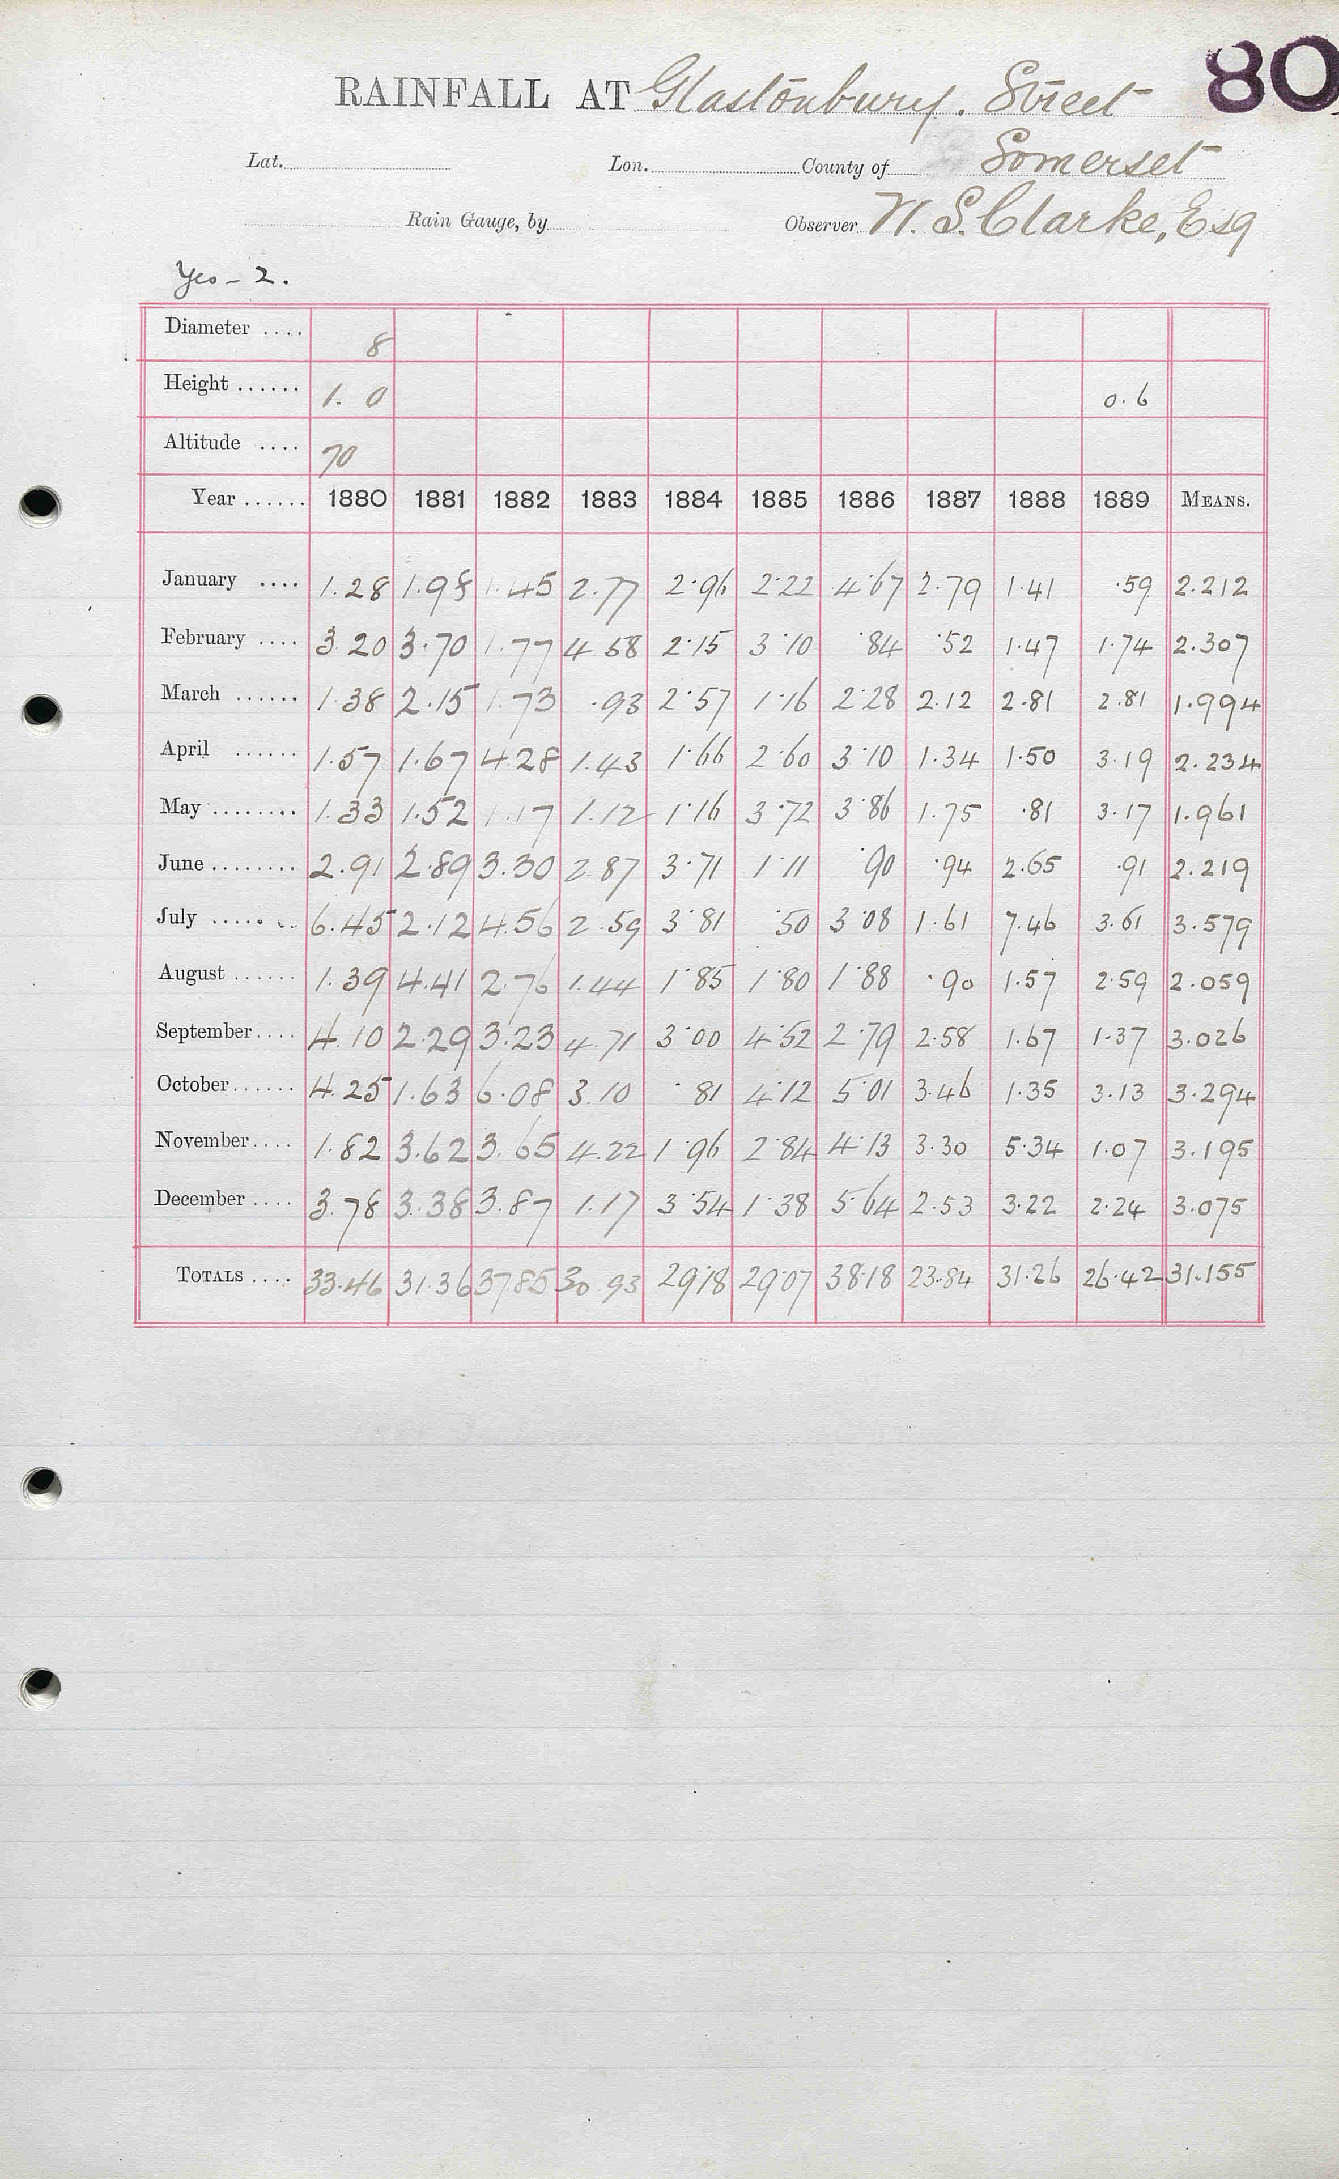 RAINFALL AT Glastonbury. Street 80
Lat. Lon. County of Somerset
Rain Gauge, by Observer W. S. Clarke, Esq
Yes - 2.
Diameter .... 8
Height ...... 1. 0 0.6
Altitude .... 70
Year ...... 1880 1881 1882 1883 1884 1885 1886 1887 1888 1889 MEANS.
January .... 1.28 1.98 1.45 2.77 2.96 2.22 4.67 2.79 1.41 .59 2.212
February .... 3.20 3.70 1.77 4.58 2.15 3.10 .84 .52 1.47 1.74 2.307
March ...... 1.38 2.15 1.73 .93 2.57 1.16 2.28 2.12 2.81 2.81 1.994
April ...... 1.57 1.67 4.28 1.43 1.66 2.60 3.10 1.34 1.50 3.19 2.234
May ........ 1.33 1.52 1.17 1.12 1.16 3.72 3.86 1.75 .81 3.17 1.961
June ........ 2.91 2.89 3.30 2.87 3.71 1.11 .90 .94 2.65 .91 2.219
July ....... 6.45 2.12 4.56 2.59 3.81 .50 3.08 1.61 7.46 3.61 3.579
August ...... 1.39 4.41 2.76 1.44 1.85 1.80 1.88 .90 1.57 2.59 2.059
September .... 4.10 2.29 3.23 4.71 3.00 4.52 2.79 2.58 1.67 1.37 3.026
October ...... 4.25 1.63 6.08 3.10 .81 4.12 5.01 3.46 1.35 3.13 3.294
November .... 1.82 3.62 3.65 4.22 1.96 2.84 4.13 3.30 5.34 1.07 3.195
December .... 3.78 3.38 3.87 1.17 3.54 1.38 5.64 2.53 3.22 2.24 3.075
TOTALS .... 33.46 31.36 37.85 30.93 29.18 29.07 38.18 23.84 31.26 26.42 31.155